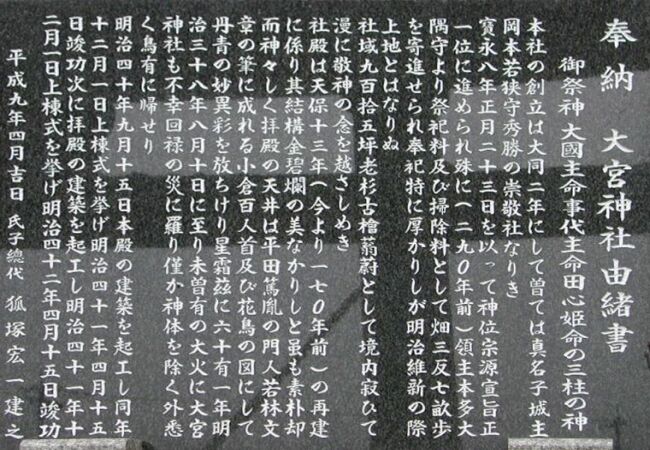 奉納 大宮神社由緒書
御祭神 大國主命事代主命田心姫命の三柱の神
本社の創立は大同二年にして曽ては真名子城主
岡本若狭守秀勝の崇敬社なりき
寳永八年正月二十三日を以って神位宗源宣旨正
一位に進められ殊に(二九〇年前)領主本多大
隅守より祭祀料及び掃除料として畑三反七畝歩
を寄進せられ奉祀特に厚かりしが明治維新の際
上地とはなりぬ
社域九百拾五坪老杉古檜蓊蔚として境内寂ひて
漫に敬神の念を越さしめき
社殿は天保十三年(今より一七〇年前)の再建
に係り其結構金碧爛の美なかりしと雖も素朴却
而神々しく拝殿の天井は平田篤胤の門人若林文
章の筆に成れる小倉百人首及び花鳥の図にして
丹青の妙異彩を放ちけり星霜茲に六十有一年明
治三十八年八月十日に至り未曽有の大火に大宮
神社も不幸回禄の災に罹り僅か神体を除く外悉
く烏有に帰せり
明治四十年九月十五日本殿の建築を起工し同年
十二月一日上棟式を挙げ明治四十一年四月十五
日竣功次に拝殿の建築を起工し明治四十一年十
二月一日上棟式を挙げ明治四十二年四月十五日竣功
平成九年四月吉日 氏子總代 狐塚宏一建之